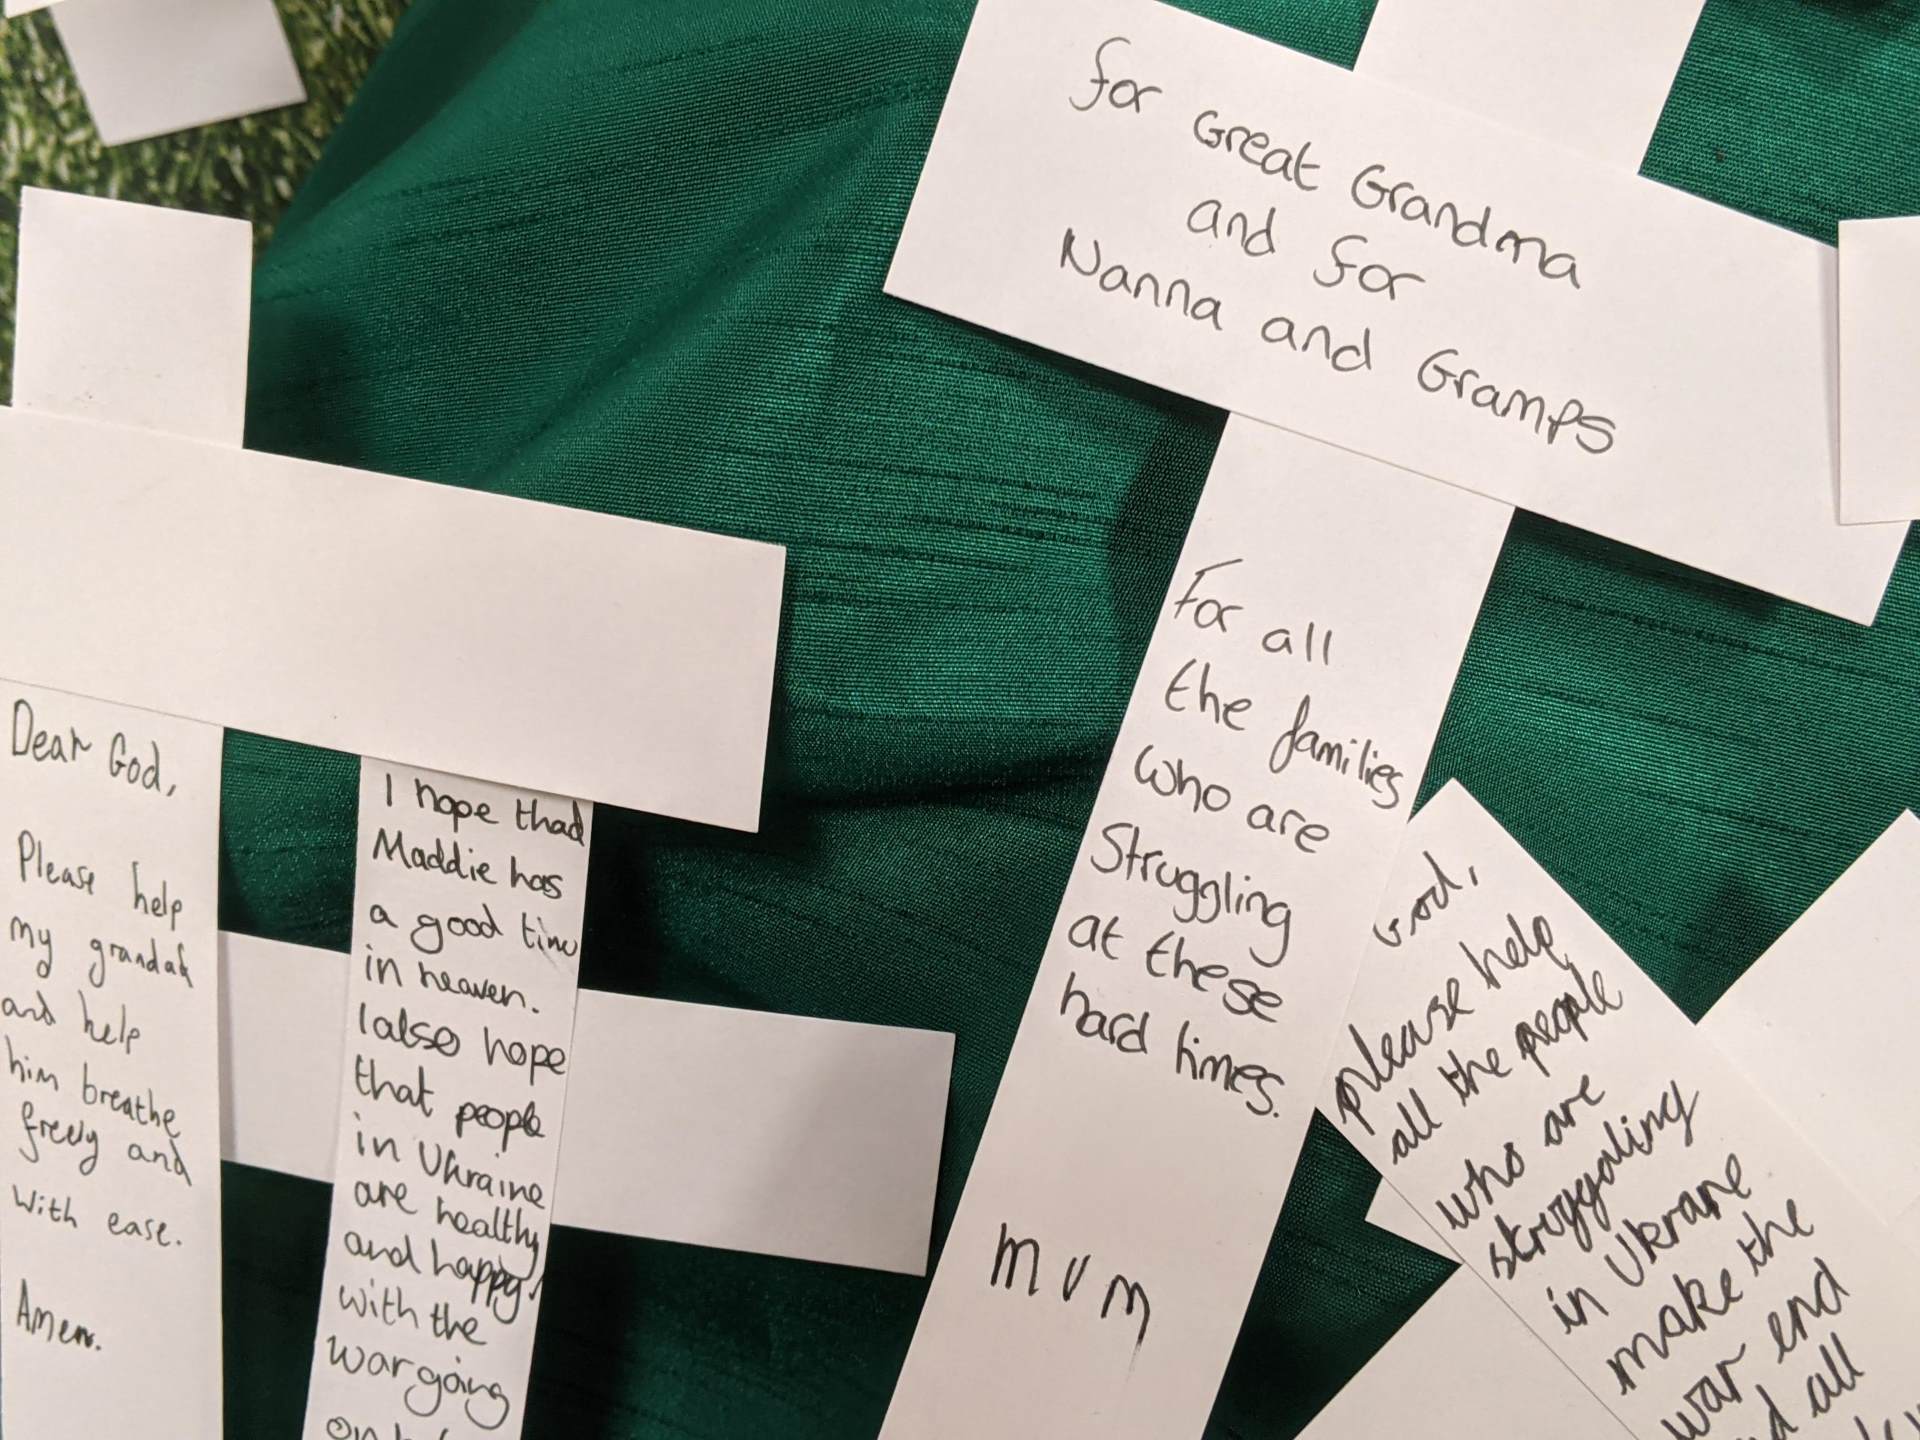 for Great Grandma
and for
Nanna and Gramps
For all
the families
who are
Struggling
at these
hard times.
mum
Dear God,
Please help
my grandad
and help
him breathe
freely and
with ease.
Amen.
I hope thad
Maddie has
a good time
in heaven.
I also hope
that people
in Ukraine
are healthy
and happy
with the
war going
God,
please help
all the people
who are
struggaling
in Ukrane
make the
war end
all